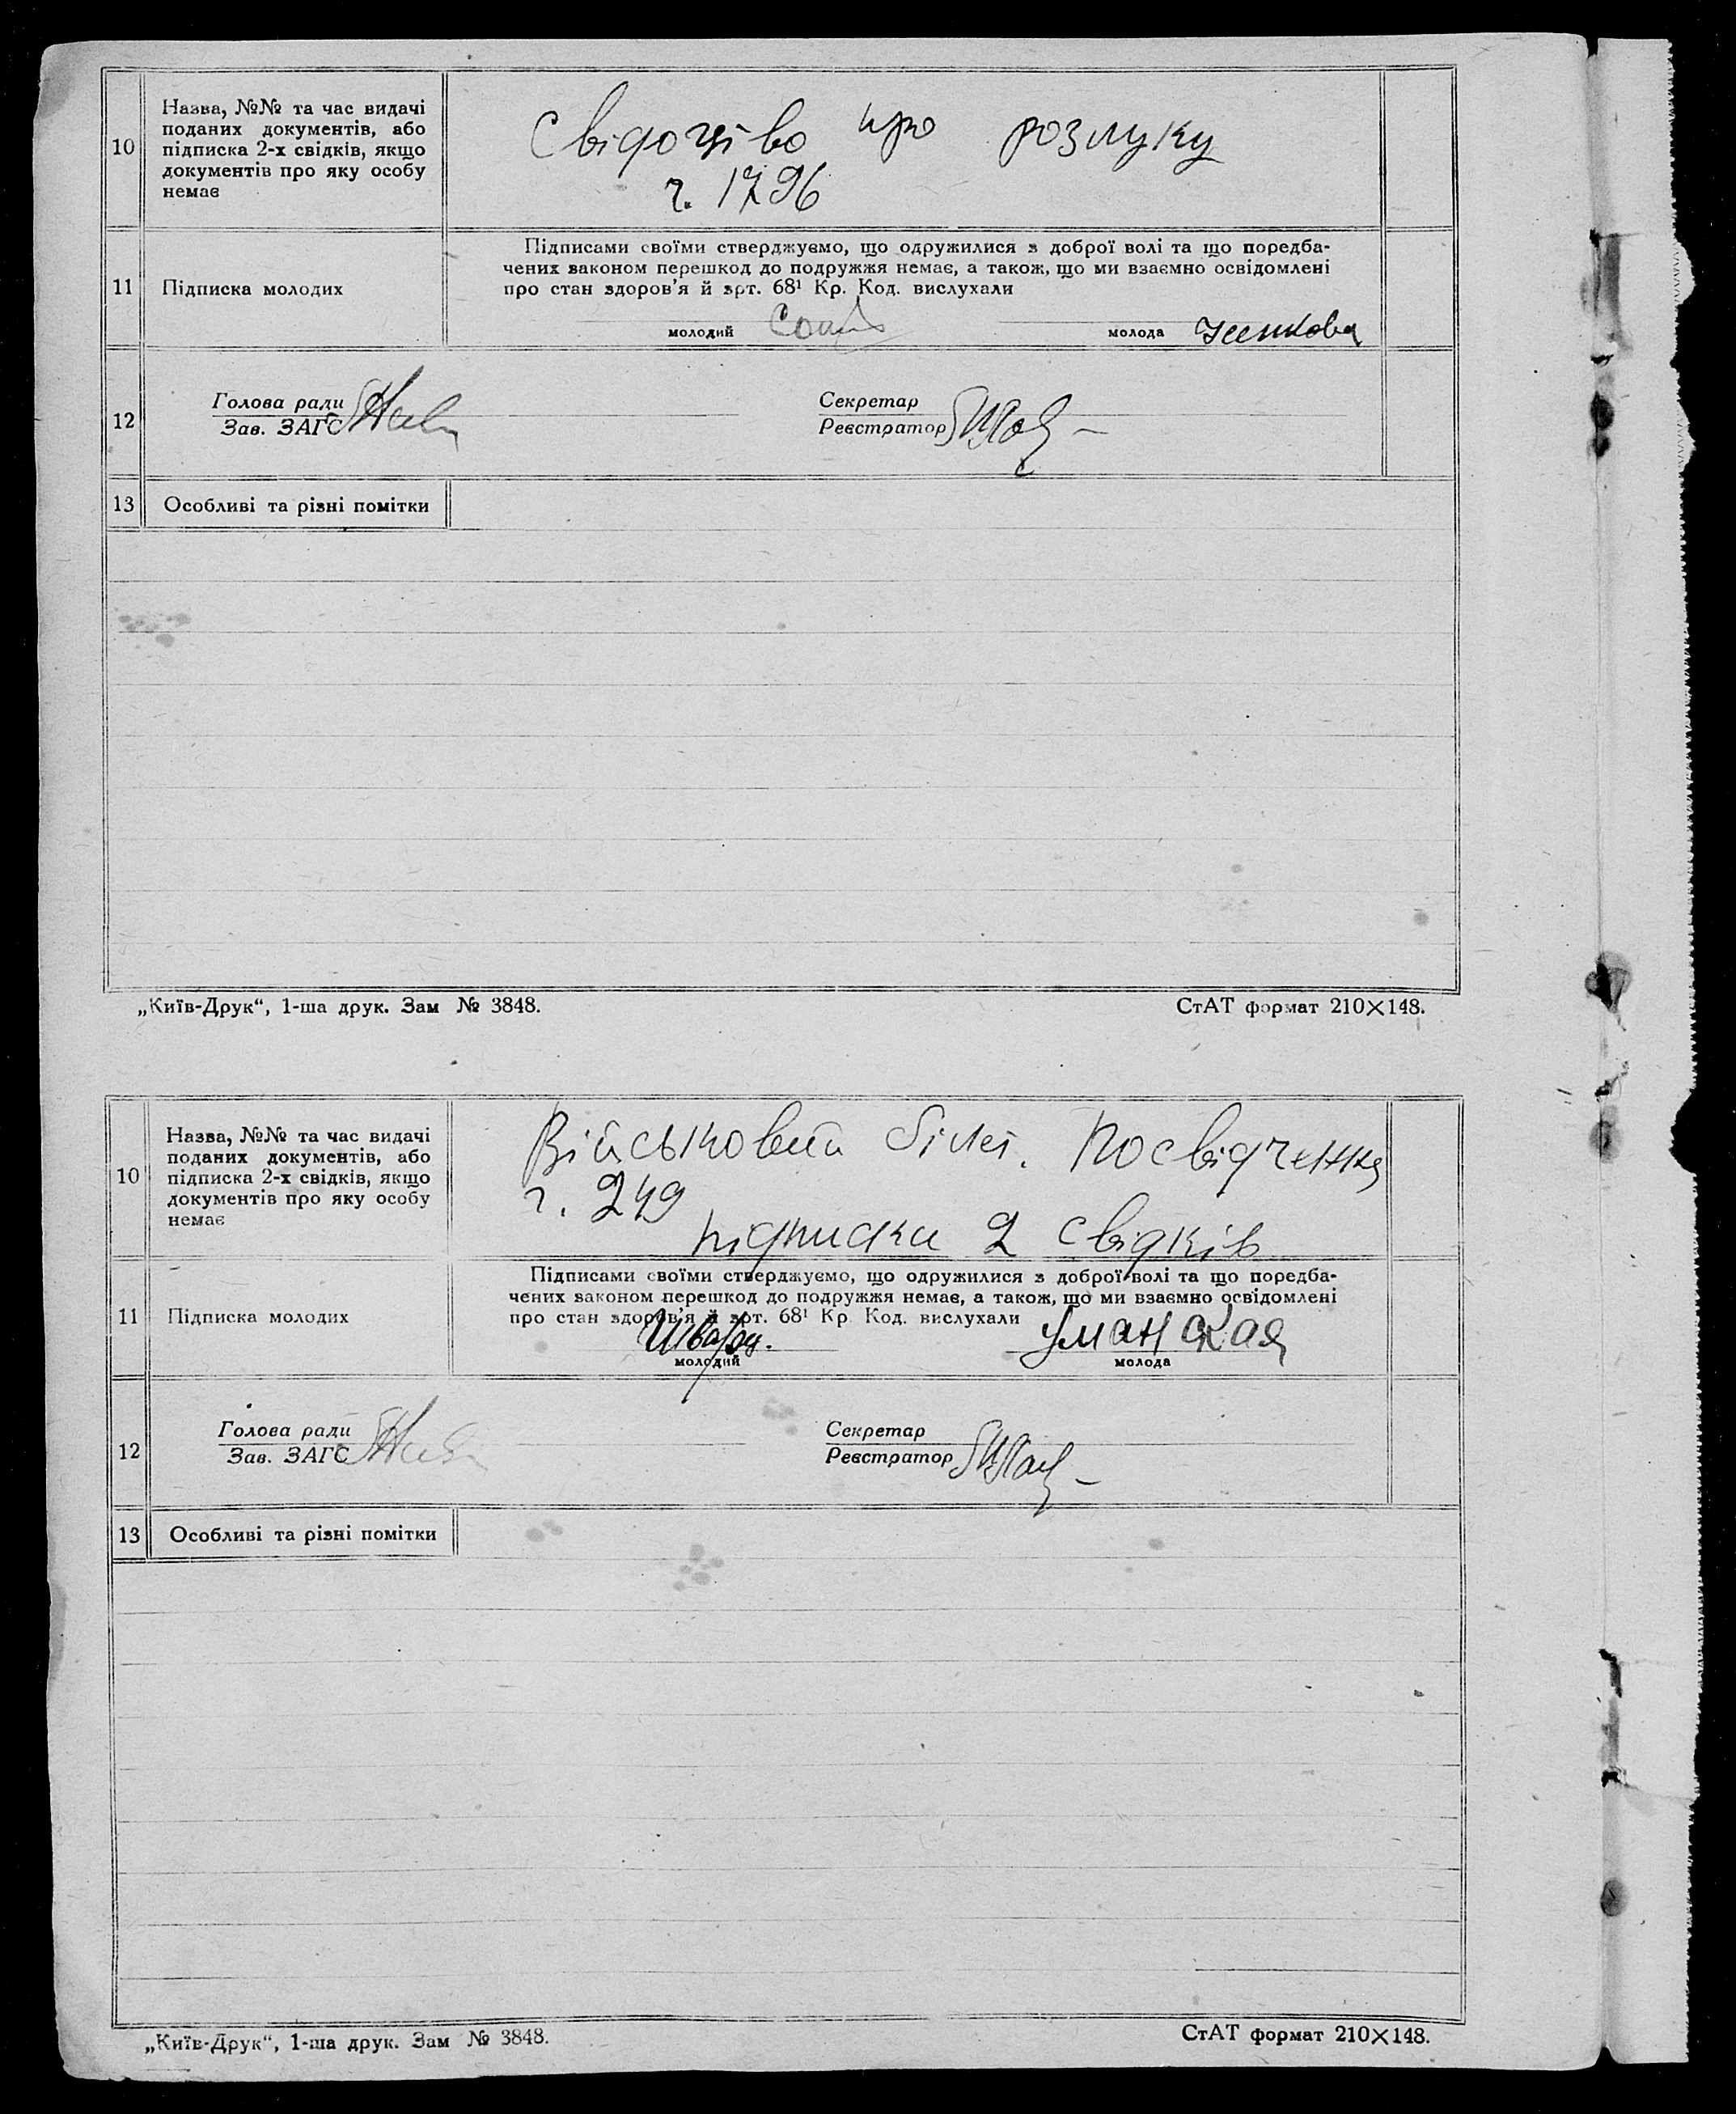 10
Назва, №№ та час видачі
поданих документів, або
підписка 2-х свідків, якщо
документів про яку особу
немає
Свідоцтво про розлуку
ч. 1796
11
Підписка молодих
Підписами своїми стверджуємо, що одружилися з доброї волі та що передба-
чених законом перешкод до подружжя немає, а також, що ми взаємно освідомлені
про стан здоров'я й арт. 68¹ Кр. Код. вислухали
молодий
молода
12
Голова ради
Зав. ЗАГС
Секретар
Реєстратор
13
Особливі та різні помітки
„Київ-Друк“, 1-ша друк. Зам № 3848.
СтАТ формат 210×148.
10
Назва, №№ та час видачі
поданих документів, або
підписка 2-х свідків, якщо
документів про яку особу
немає
Військовий білет. Посвідчення
ч. 249
підписка 2 свідків
11
Підписка молодих
Підписами своїми стверджуємо, що одружилися з доброї волі та що передба-
чених законом перешкод до подружжя немає, а також, що ми взаємно освідомлені
про стан здоров'я й арт. 68¹ Кр. Код. вислухали
Шварц.
Уманская
молодий
молода
12
Голова ради
Зав. ЗАГС
Секретар
Реєстратор
13
Особливі та різні помітки
„Київ-Друк“, 1-ша друк. Зам № 3848.
СтАТ формат 210×148.